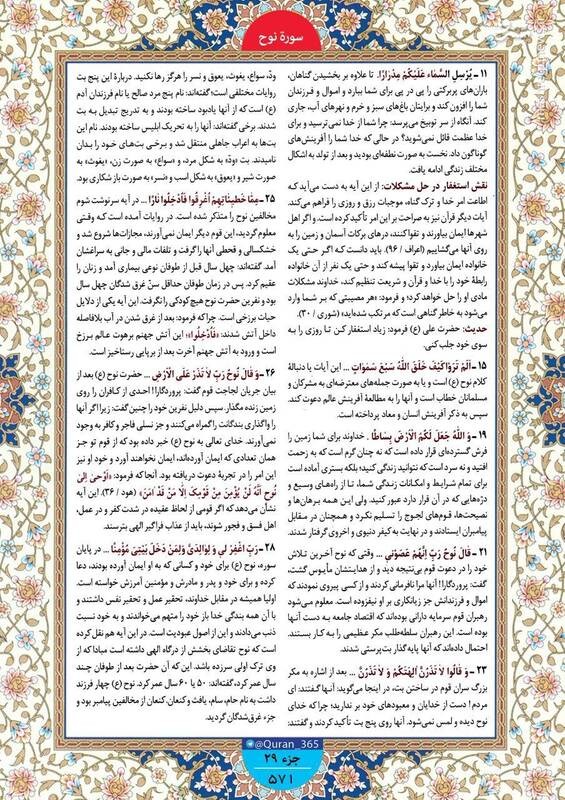 سورة نوح
۱۱ ـ یُرْسِلِ السَّمَاءَ عَلَیْکُمْ مِدْرَارًا. تا علاوه بر بخشیدن گناهان،
باران‌های پربرکتی را پی در پی برای شما ببارد و اموال و فرزندان
شما را افزون کند و برایتان باغ‌های سبز و خرم و نهرهای آب، جاری
کند. آنگاه از سر توبیخ می‌پرسد: چرا شما از خدا نمی‌ترسید و برای
خدا عظمت قائل نمی‌شوید؟ در حالی که خدا شما را آفرینش‌های
گوناگون داد. نخست به صورت نطفه‌ای بودید و بعد از تولد به اشکال
مختلف زندگی ادامه یافت.
نقش استغفار در حل مشکلات: از این آیه به دست می‌آید که
اطاعت امر خدا و ترک گناه، موجبات رزق و روزی را فراهم می‌کند.
آیات دیگر قرآن نیز به صراحت بر این امر تأکید کرده است. و اگر اهل
شهرها ایمان بیاورند و تقوا کنند، درهای برکات آسمان و زمین را به
روی آنها می‌گشاییم (اعراف / ۹۶). باید دانست که اگر حتی یک
خانواده ایمان بیاورد و تقوا پیشه کند و حتی یک نفر از آن خانواده
رابطهٔ خود را با خدا و قرآن و شریعت تنظیم کند، خداوند مشکلات
مادی او را حل خواهد کرد؛ و فرمود: «هر مصیبتی که بر شما وارد
می‌شود به خاطر گناهی است که مرتکب شده‌اید» (شوری / ۳۰).
حدیث: حضرت علی (ع) فرمود: زیاد استغفار کن تا روزی را به
سوی خود جلب کنی.
۱۵ ـ اَلَمْ تَرَوْا کَیْفَ خَلَقَ اللّٰهُ سَبْعَ سَمٰوَاتٍ ... این آیات یا دنبالهٔ
کلام نوح (ع) است و یا به صورت جمله‌های معترضه‌ای به مشرکان و
مسلمانان خطاب است و آنها را به مطالعهٔ آفرینش عالم دعوت کند.
سپس به ذکر آفرینش انسان و معاد پرداخته است.
۱۹ ـ وَ اللّٰهُ جَعَلَ لَکُمُ الْاَرْضَ بِسَاطًا . خداوند برای شما زمین را
فرش گسترده‌ای قرار داده است که نه چنان گرم است که به زحمت
افتید و نه سرد است که نتوانید زندگی کنید؛ بلکه بستری آماده است
برای تمام شرایط و امکانات زندگی شما، تا از راه‌های وسیع و
دره‌هایی که در آن قرار دارد عبور کنید. ولی این همه برهان‌ها و
نصیحت‌ها، قوم‌های لجوج را تسلیم نکرد و همچنان در مقابل
پیامبران ایستادند و در نهایت به کیفر دنیوی و اخروی گرفتار شدند.
۲۱ ـ قَالَ نُوحٌ رَبِّ اِنَّهُمْ عَصَوْنِی ... وقتی که نوح آخرین تلاش
خود را در دعوت قوم بی‌نتیجه دید و از هدایتشان مأیوس گشت،
گفت: پروردگارا! آنها مرا نافرمانی کردند و از کسی پیروی نمودند که
اموال و فرزندانش جز زیانکاری بر او نیفزوده است. معلوم می‌شود
رهبران قوم سرمایه دارانی بوده‌اند که اقتصاد جامعه به دست آنها
بوده است. این رهبران سلطه‌طلب مکر عظیمی را به کار بستند.
احتمال داده‌اند که آنها پایه گذار بت پرستی شدند.
۲۳ ـ وَ قَالُوا لَا تَذَرُنَّ آلِهَتَکُمْ وَ لَا تَذَرُنَّ ... بعد از اشاره به مکر
بزرگ سران قوم در ساختن بت، در اینجا می‌گوید: آنها گفتند: ای
مردم! دست از خدایان و معبودهای خود بر ندارید؛ چرا که خدای
نوح دیده و لمس نمی‌شود. آنها روی پنج بت تأکید کردند و گفتند:
ودّ، سواع، یغوث، یعوق و نسر را هرگز رها نکنید. دربارهٔ این پنج بت
روایات مختلفی است؛ گفته‌اند: نام پنج مرد صالح یا نام فرزندان آدم
(ع) است که از آنها یادبود ساخته بودند و به تدریج تبدیل به بت
شدند. برخی گفته‌اند: آنها را به تحریک ابلیس ساخته بودند. نام این
بت‌ها به اعراب جاهلی منتقل شد و برخی بت‌های خود را بدان
نامیدند. بت «ودّ» به شکل مرد، و «سواع» به صورت زن، «یغوث» به
صورت شیر و «یعوق» به شکل اسب و «نسر» به صورت باز شکاری بود.
۲۵ ـ مِمَّا خَطِیئَاتِهِمْ اُغْرِقُوا فَاُدْخِلُوا نَارًا ... در آیه سرنوشت شوم
مخالفین نوح را متذکر شده است. در روایات آمده است که وقتی
معلوم گردید، این قوم دیگر ایمان نمی‌آورند، مجازات‌ها شروع شد و
خشکسالی و قحطی آنها را گرفت و تلفات مالی و جانی به سراغشان
آمد. گفته‌اند: چهل سال قبل از طوفان نوعی بیماری آمد و زنان را
عقیم کرد. پس در زمان طوفان حداقل سنّ غرق شدگان چهل سال
بود و نفرین حضرت نوح هیچ کودکی را نگرفت. این آیه یکی از دلایل
حیات برزخی است. چرا که فرمود: بعد از غرق شدن در آب بلافاصله
داخل آتش شدند: «فَاُدْخِلُوا»؛ این آتش جهنم برهوت عالم برزخ
است و ورود به آتش جهنم آخرت بعد از برپایی رستاخیز است.
۲۶ ـ وَ قَالَ نُوحٌ رَبِّ لَا تَذَرْ عَلَی الْاَرْضِ ... حضرت نوح (ع) بعد از
بیان جریان لجاجت قوم گفت: پروردگارا! احدی از کافران را روی
زمین زنده مگذار. سپس دلیل نفرین خود را چنین گفت: زیرا اگر آنها
را واگذاری بندگانت را گمراه می‌کنند و جز نسلی فاجر و کافر به وجود
نمی‌آورند. خدای تعالی به نوح (ع) خبر داده بود که از قوم تو جز
همان تعدادی که ایمان آورده‌اند، ایمان نخواهند آورد و خود او نیز
این امر را در تجربهٔ دعوت دریافته بود. آنجا که فرمود: «اُوحِیَ اِلیٰ
نُوحٍ اَنَّهُ لَنْ یُؤْمِنَ مِنْ قَوْمِکَ اِلَّا مَنْ قَدْ اٰمَنَ» (هود / ۳۶). این آیه
نشان می‌دهد که اگر قومی از لحاظ عقیده در شدت کفر و در عمل،
اهل فسق و فجور شوند، باید از عذاب فراگیر الهی بترسند.
۲۸ ـ رَبِّ اغْفِرْ لِی وَ لِوَالِدَیَّ وَ لِمَنْ دَخَلَ بَیْتِیَ مُؤْمِنًا ... در پایان
سوره، نوح (ع) برای خود و کسانی که به او ایمان آورده بودند، دعا
کرده و برای خود و پدر و مادرش و مؤمنین آمرزش خواسته است.
اولیا همیشه در مقابل خداوند، تحقیر عمل و تحقیر نفس داشتند و
با آن همه بندگی خدا باز خود را متهم می‌خواندند و به خود نسبت
ذنب می‌دادند و این از اصول عبودیت است. در این آیه هم نقل کرده
است که نوح تقاضای بخشش از درگاه الهی داشته است مبادا که از
وی ترک اولی سرزده باشد. این که آن حضرت بعد از طوفان چند
سال عمر کرد، گفته‌اند: ۵۰ یا ۶۰ سال عمر کرد. نوح (ع) چهار فرزند
داشت به نام حام، سام، یافت و کنعان. کنعان از مخالفین پیامبر بود و
جزء غرق‌شدگان گردید.
@Quran_365
جزء ۲۹
۵۷۱